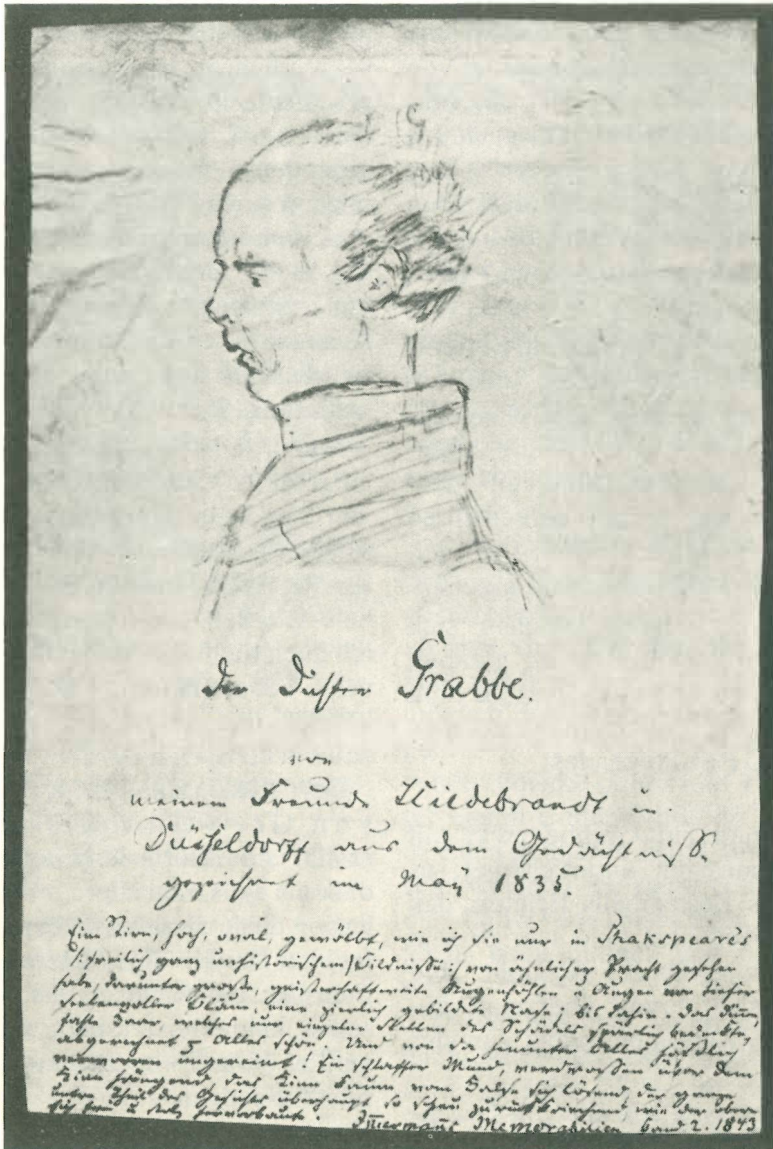 der Dichter Grabbe.
von
meinem Freunde Hildebrandt in
Düsseldorff aus dem Gedächtniss
gezeichnet im May 1835.
Eine Stirn, hoch, oval, gewölbt, wie ich sie nur in Shakspeare's
/:freilich ganz unhistorischem/ Bildnisse:/ von ähnlicher Pracht gesehen
habe, darunter große, geisterhaftweite Augenhöhlen u Augen von tiefer
seelenvoller Bläue, eine zierlich gebildete Nase; bis dahin - das dünne
fahle Haar, welches nur einzelne Stellen des Schädels spärlich bedeckte,
abgerechnet - Alles schön. Und von da hinunter Alles häßlich
verworren ungereimt! Ein schlaffer Mund, verdrossen über dem
Kinn hängend, das Kinn kaum vom Halse sich lösend, der ganze
untere Theil des Gesichts überhaupt so scheu zurückkriechend, wie der obere
sich frei u stolz hervorbaute. Immermañs Memorabilien Band 2. 1843